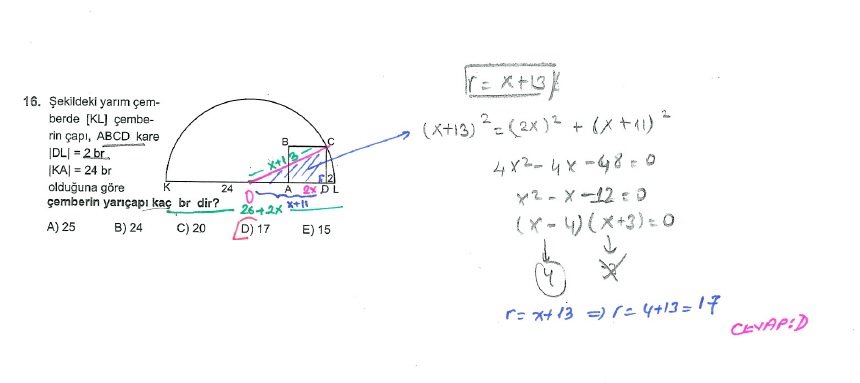 16. Şekildeki yarım çem-
berde [KL] çembe-
rin çapı, ABCD kare
|DL| = 2 br
|KA| = 24 br
olduğuna göre
çemberin yarıçapı kaç br dir?
A) 25 B) 24 C) 20 D) 17 E) 15
B C
x+13
2
K 24 A 2x D L
O x+11
26+2x
r = x+13
(x+13)² = (2x)² + (x+11)²
4x² - 4x - 48 = 0
x² - x - 12 = 0
(x - 4)(x+3) = 0
4
r = x+13 ⇒ r = 4+13 = 17
CEVAP:D